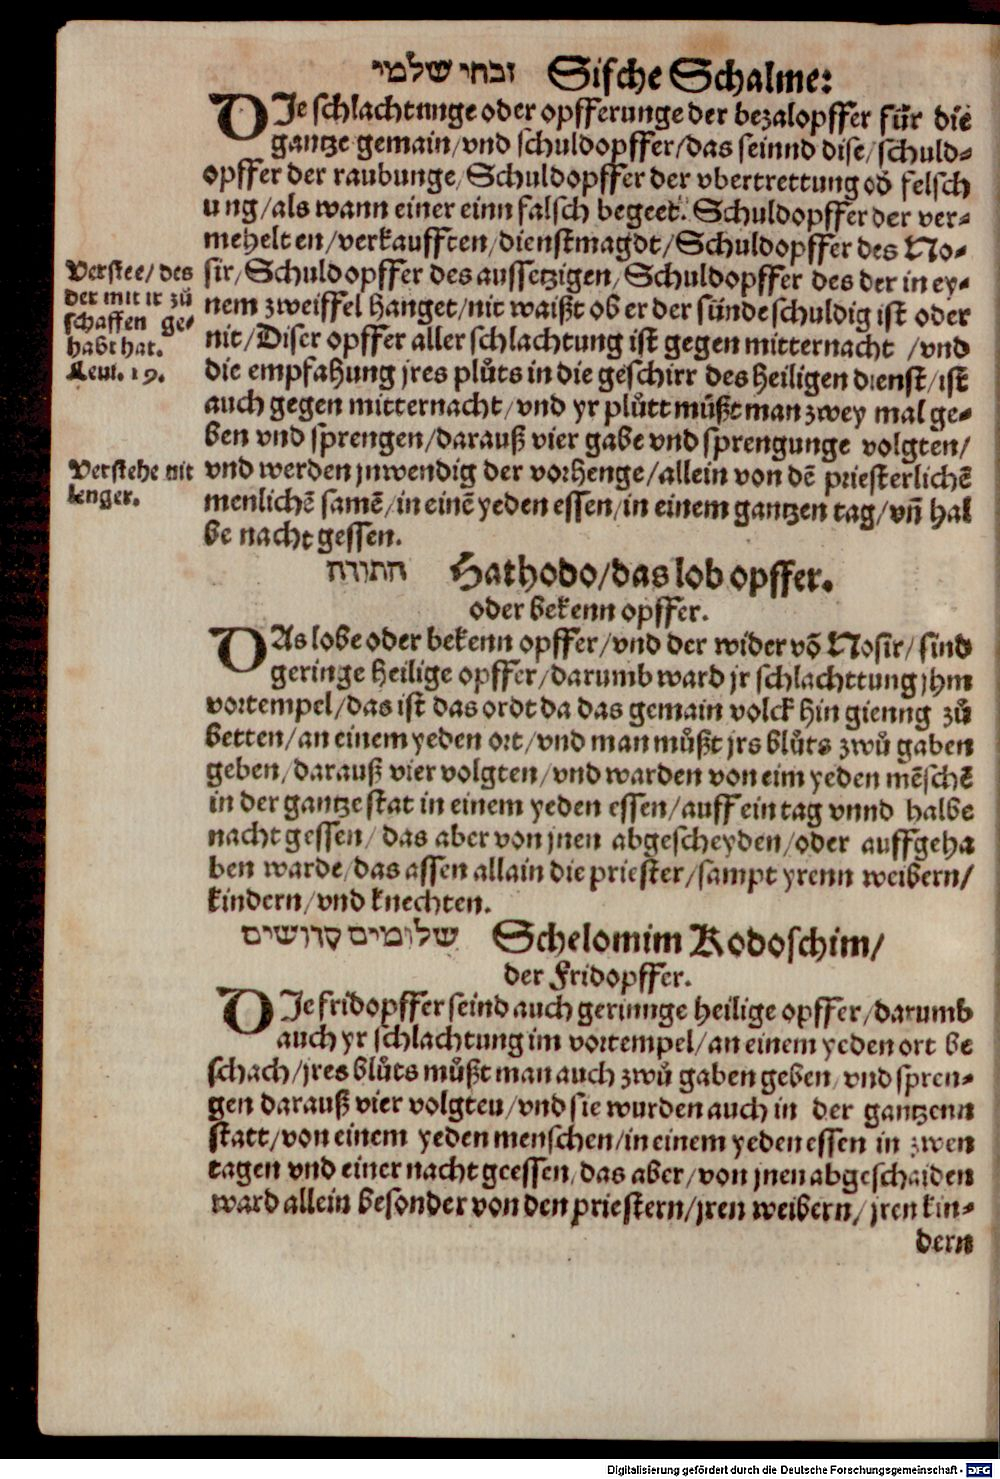 זבחי שלמי Sifche Schalme:
DJe schlachtunge oder opfferunge der bezalopffer für die
gantze gemain/vnd schuldopffer/das seinnd dise/schuld-
opffer der raubunge/Schuldopffer der vbertrettung oď felsch
ung/als wann einer einn falsch begeet. Schuldopffer der ver-
mehelten/verkaufften/dienstmagdt/Schuldopffer des No-
Verstee/des
der mit ir zů
schaffen ge-
habt hat.
Leui. 19.
sir/Schuldopffer des aussetzigen/Schuldopffer des der in ey-
nem zweiffel hanget/nit waißt ob er der sünde schuldig ist oder
nit/Diser opffer aller schlachtung ist gegen mitternacht /vnd
die empfahung jres plůts in die geschirr des heiligen dienst/ist
auch gegen mitternacht/vnd yr plůtt můßt man zwey mal ge-
ben vnd sprengen/darauß vier gabe vnd sprengunge volgten/
Verstehe nit
lenger.
vnd werden jnwendig der vorhenge/allein von dē priesterlichē
menlichē samē/in einē yeden essen/in einem gantzen tag/vn̄ hal
be nacht gessen.
התודה Hathodo/das lob opffer.
oder bekenn opffer.
DAs lobe oder bekenn opffer/vnd der wider vō Nosir/sind
geringe heilige opffer/darumb ward jr schlachttung jhm
vortempel/das ist das ordt da das gemain volck hin gienng zů
betten/an einem yeden ort/vnd man můßt jrs blůts zwů gaben
geben/darauß vier volgten/vnd warden von eim yeden mēschē
in der gantze stat in einem yeden essen/auff ein tag vnnd halbe
nacht gessen/das aber von jnen abgescheyden/oder auffgeha
ben warde/das assen allain die priester/sampt yrenn weibern/
kindern/vnd knechten.
שלומים קדושים Schelomim Kodoschim/
der Fridopffer.
DJe fridopffer seind auch gerinnge heilige opffer/darumb
auch yr schlachtung im vortempel/an einem yeden ort be
schach/jres blůts můßt man auch zwů gaben geben/vnd spren-
gen darauß vier volgten/vnd sie wurden auch in der gantzenn
statt/von einem yeden menschen/in einem yeden essen in zwen
tagen vnd einer nacht geessen/das aber/von jnen abgeschaiden
ward allein besonder von den priestern/jren weibern/jren kin-
dern
Digitalisierung gefördert durch die Deutsche Forschungsgemeinschaft - DFG